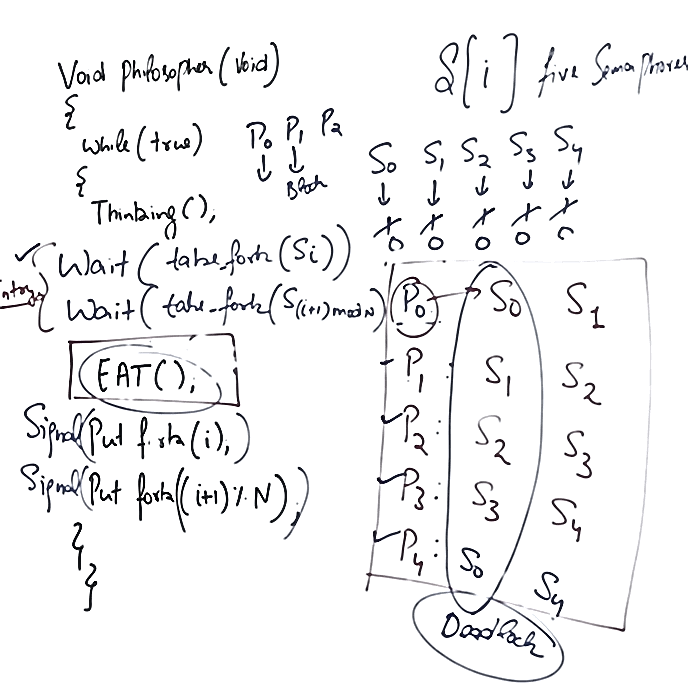 Void Philosopher(Void)
{
while(true)
{
Thinking(),
Wait(take_fork(Si))
Wait(take_fork(S(i+1)modN)
EAT(),
Signal(Put fork(i),)
Signal(Put fork((i+1)%N),)
}
}
P0 P1 P2
↓ ↓
Block
S[i] five Semaphores
S0 S1 S2 S3 S4
↓ ↓ ↓ ↓ ↓
1 1 1 1 1
0 0 0 0 0
P0 → S0 S1
P1: S1 S2
P2: S2 S3
P3: S3 S4
P4: S0 S4
Deadlock